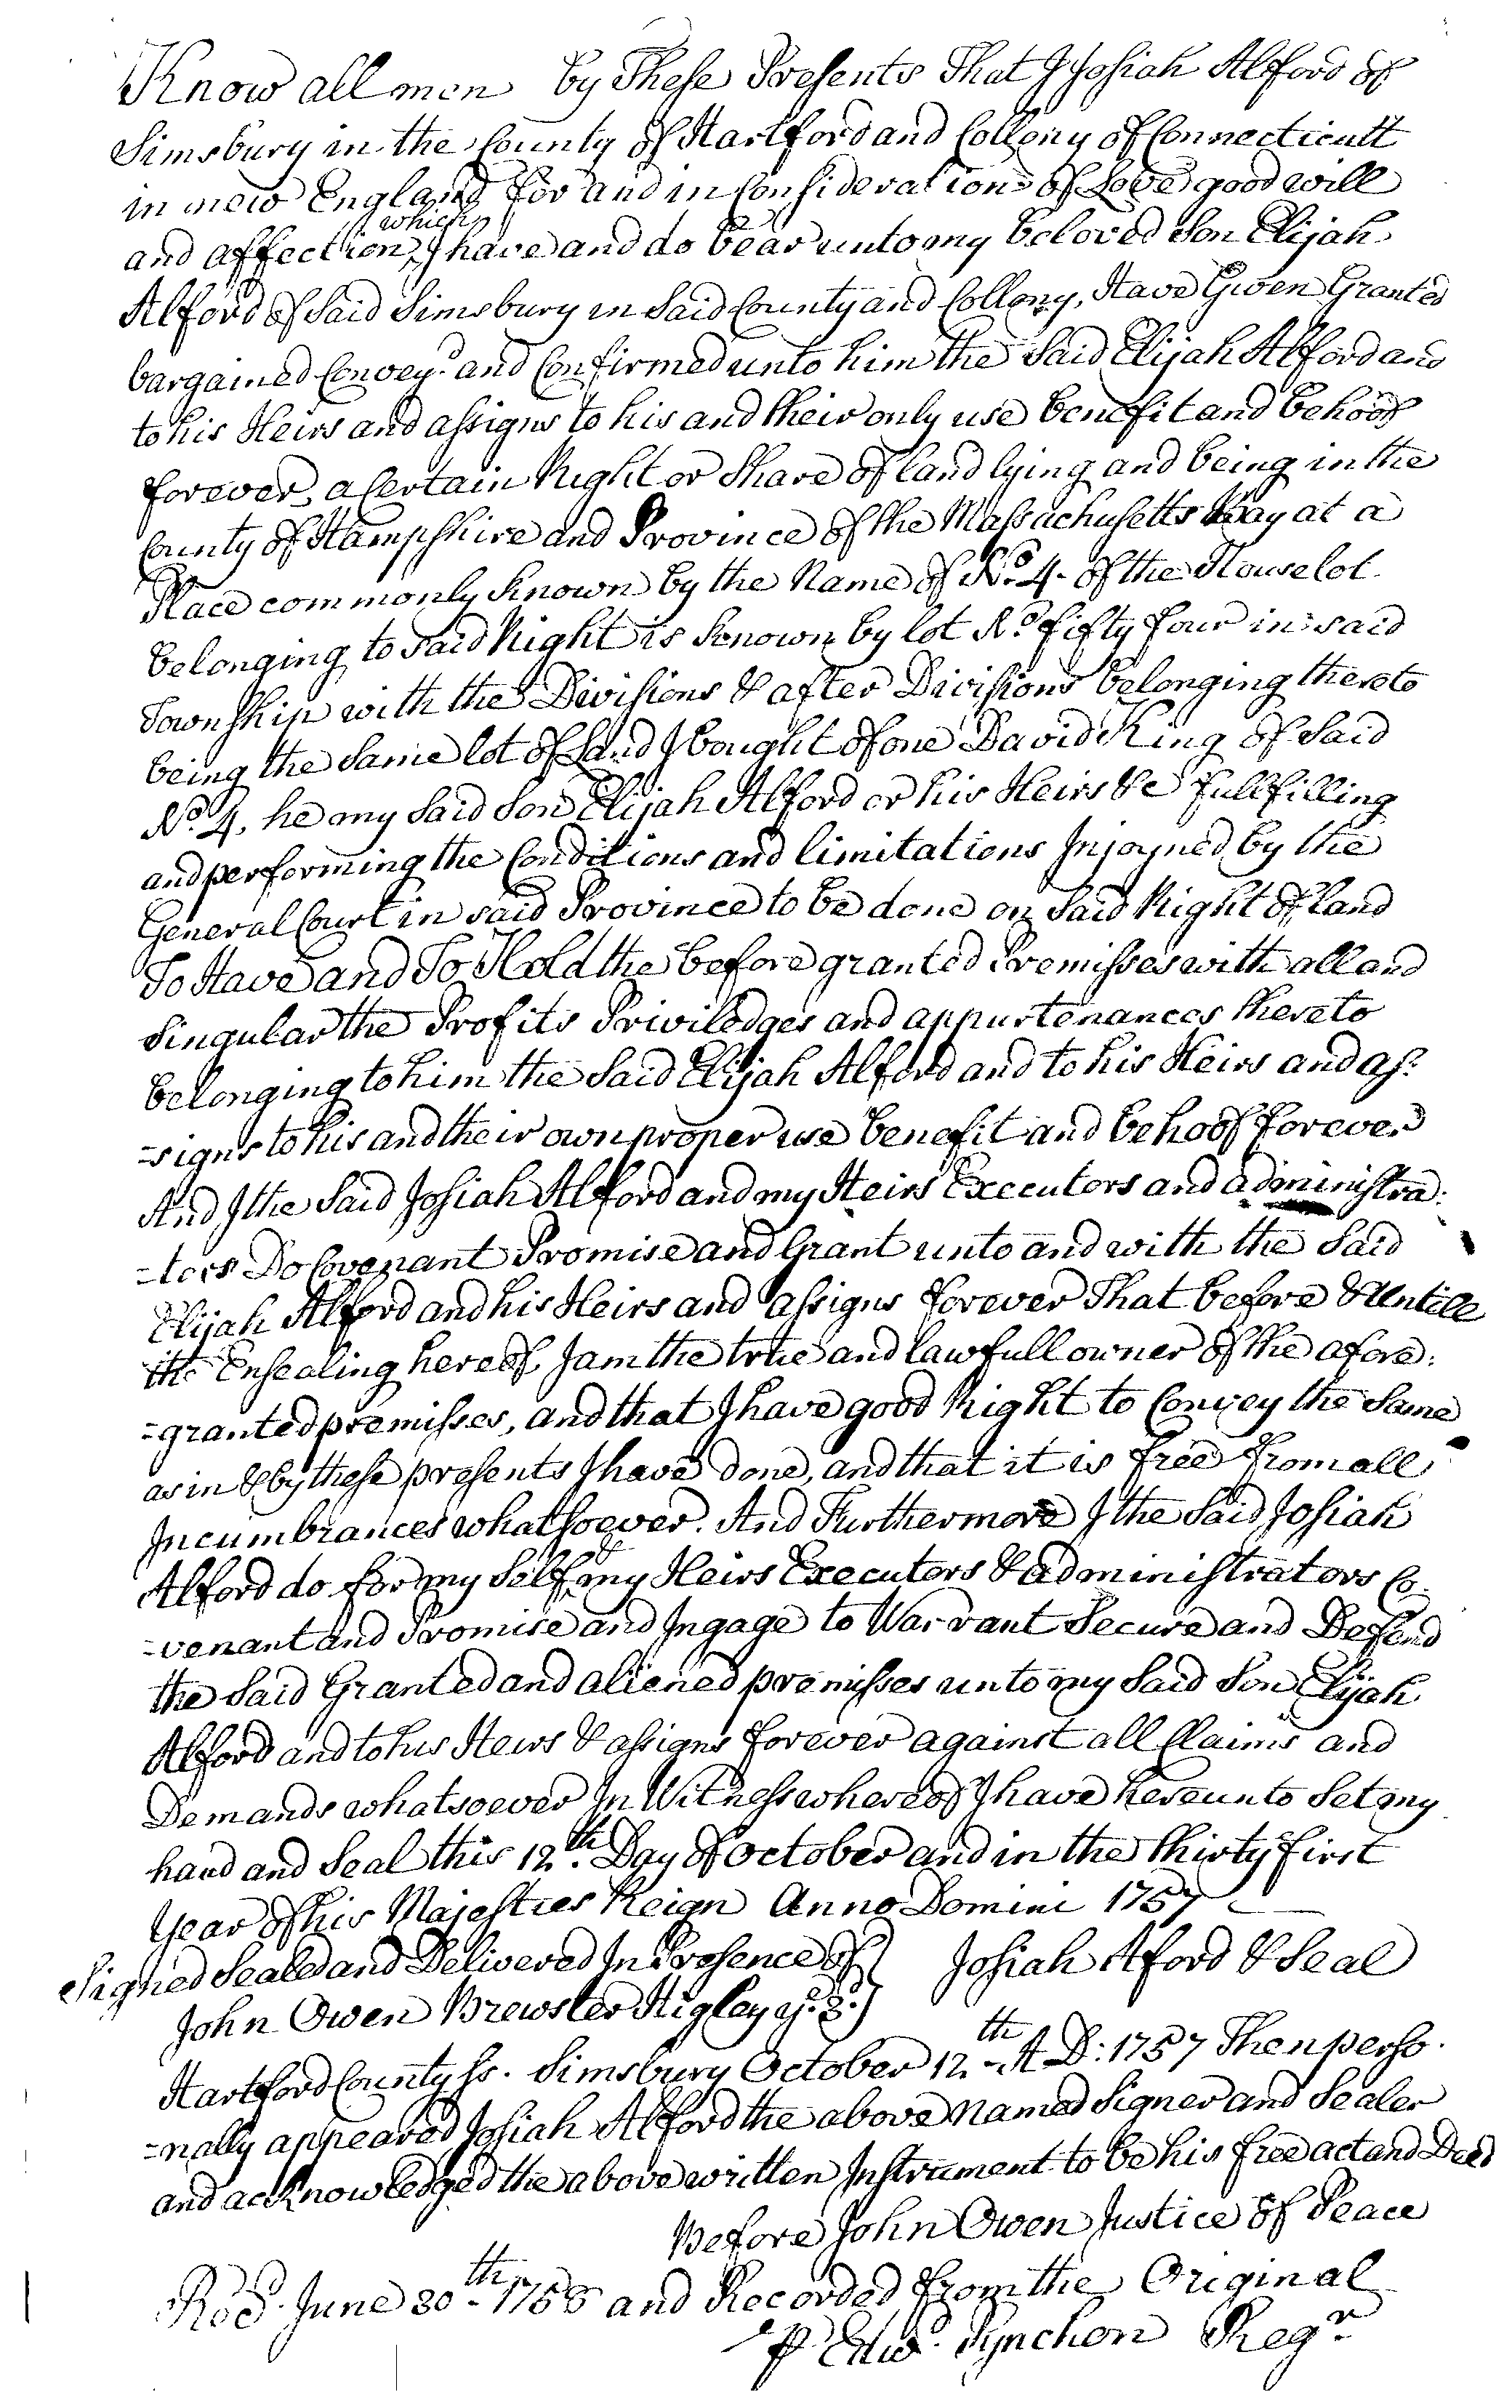 Know all men by These Presents That I Josiah Alford of
Simsbury in the County of Hartford and Collony of Connecticutt
in new England for and in Consideration of Love good will
and affection, which I have and do bear unto my beloved Son Elijah
Alford of Said Simsbury in Said County and Collony, Have Given Granted
bargained Convey.d and Confirmed unto him the Said Elijah Alford and
to his Heirs and assigns to his and their only use benefit and behoof
forever, a Certain Right or Share of land lying and being in the
County of Hampshire and Province of the Massachusetts Bay at a
Place commonly known by the Name of No. 4. of the House lot
belonging to Said Right is known by lot No. fifty four in said
Township with the Divisions & after Divisions belonging thereto
being the Same lot of Land I bought of one David King of Said
No. 4, he my Said Son Elijah Alford or his Heirs &c fullfilling
and performing the Conditions and limitations Injoyned by the
General Court in said Province to be done on Said Right of land
To Have and To Hold the before granted Premisses with all and
Singular the Profits Priviledges and appurtenances thereto
belonging to him the Said Elijah Alford and to his Heirs and as:
=signs to his and their own proper use benefit and behoof forever
And I the Said Josiah Alford and my Heirs Executors and administra:
=tors Do Covenant Promise and Grant unto and with the Said
Elijah Alford and his Heirs and assigns forever That before & Untill
the Ensealing hereof I am the true and lawfull owner of the afore:
=granted premisses, and that I have good Right to Convey the Same
as in & by these presents I have done, and that it is free from all
Incumbrances whatsoever. And Furthermore I the Said Josiah
Alford do for my Self & my Heirs Executors & administrators Co:
=venant and Promise and Ingage to Warrant Secure and Defend
the Said Granted and aliened premisses unto my Said Son Elijah
Alford and to his Heirs & assigns forever against all Claims and
Demands whatsoever In Witness whereof I have hereunto Set my
hand and Seal this 12th. Day of October and in the thirty first
Year of his Majesties Reign Anno Domini 1757
Signed Sealed and Delivered In Presence of } Josiah Alford & Seal
John Owen Brewster Higley yr. 3.d }
Hartford County Ss. Simsbury October 12th A D: 1757 Then perso:
=nally appeared Josiah Alford the above named Signer and Sealer
and acknowledged the above written Instrument to be his free act and Deed
Before John Owen Justice of Peace
Recd. June 30th 1758 and Recorded from the Original
P Edwd. Pynchon Regr.